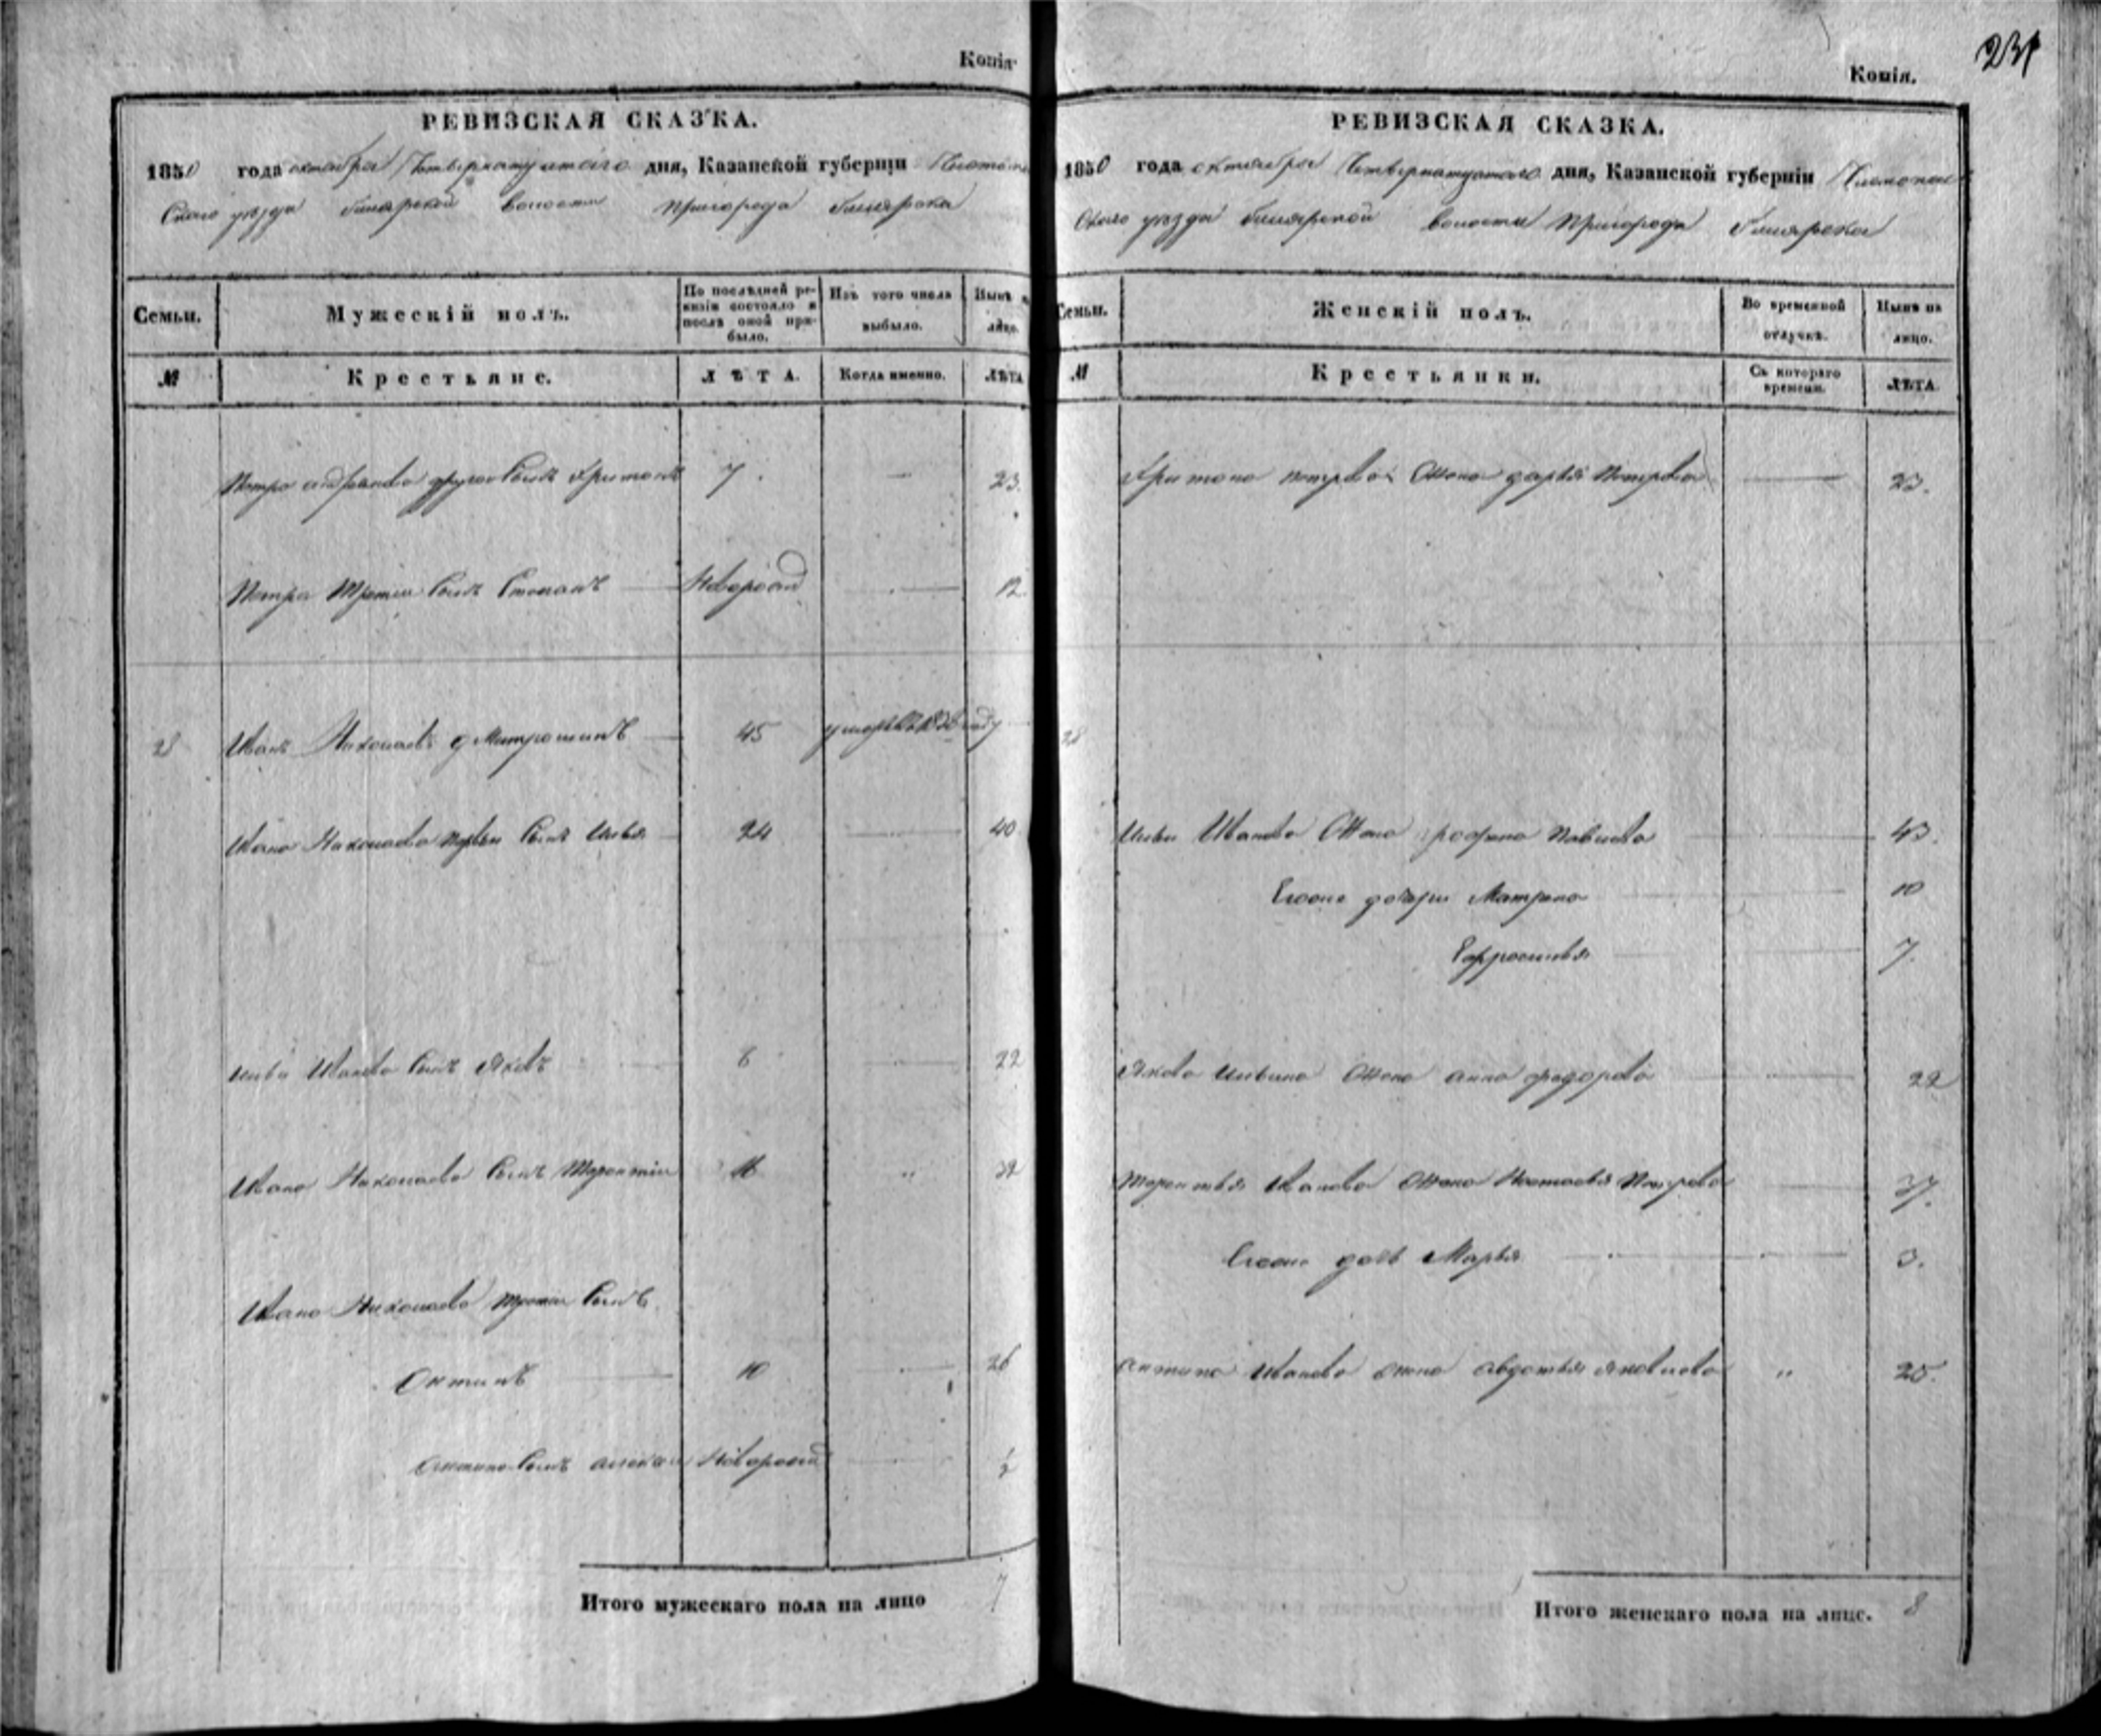 Копія
РЕВИЗСКАЯ СКАЗКА.
1850 года октября Четвернатцатого дня, Казанской губерніи Чистополь
Скаго уезда билярской волости Пригорода билярска
Семьи.
Мужескій полъ.
По послѣдней ре-
визіи состояло и
послѣ оной при-
было.
Изъ того числа
выбыло.
Нынѣ на
лицо.
№
Крестьяне.
ЛѢТА.
Когда именно.
ЛѢТА
Петра другой Сынъ Харитонъ 7. 23.
Петра Третии Сынъ Степанъ Новорожд 12
28 Иванъ Николаевъ Митрошинъ 45 умеръ въ году
Ивана Николаева первы Сынъ Илья 24 40
Ильи Иванова Сынъ Яковъ 6 22
Ивана Николаева Сынъ Терентіи 16 32
Ивана Николаева третии Сынъ
Антипъ 10 26
Антипа Сынъ Новорожд ½
Итого мужескаго пола на лицо 7
231
Копія.
РЕВИЗСКАЯ СКАЗКА.
1850 года октября Четвернатцатого дня, Казанской губерніи Чистополь
Скаго уезда билярской волости Пригорода билярска
Семьи.
Женскій полъ.
Во временной
отлучкѣ.
Нынѣ на
лицо.
№
Крестьянки.
Съ котораго
времени.
ЛѢТА.
Харитона петрова Жена дарья Петрова 23.
28
Ильи Иванова Жена Павлова 43.
Егоже дочери Матрена 10
Ефросинья 7.
Якова Ильина Жена анна федорова 22
Терентья Иванова Жена Настасья Петрова 37.
Егоже дочь Марья 3.
Антипа Иванова жена авдотья яковлева „ 25.
Итого женскаго пола на лицо. 8